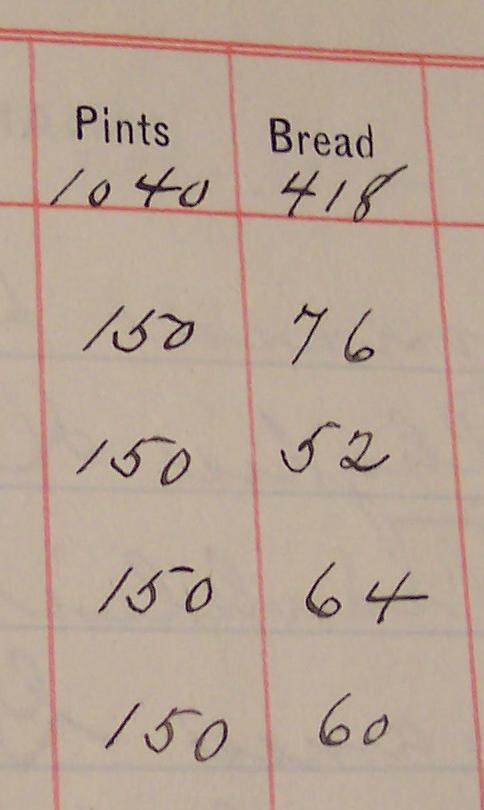 Pints Bread
1040 418
150 76
150 52
150 64
150 60